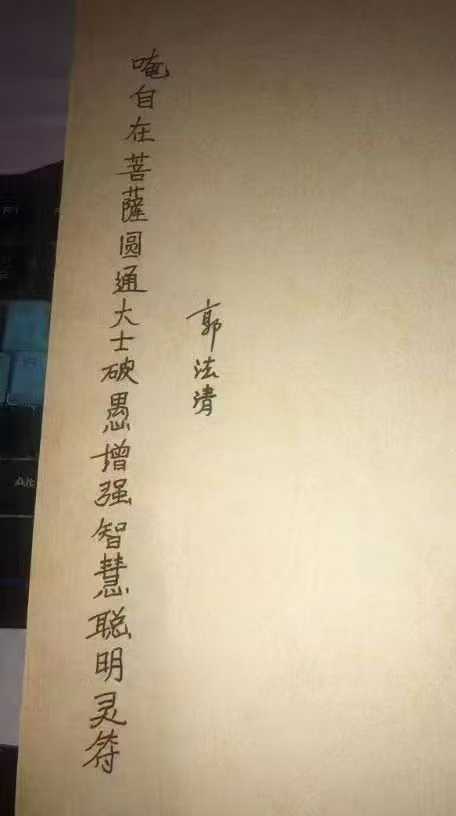 唵自在菩薩圆通大士破愚增强智慧聪明灵符
郭法清
Alt